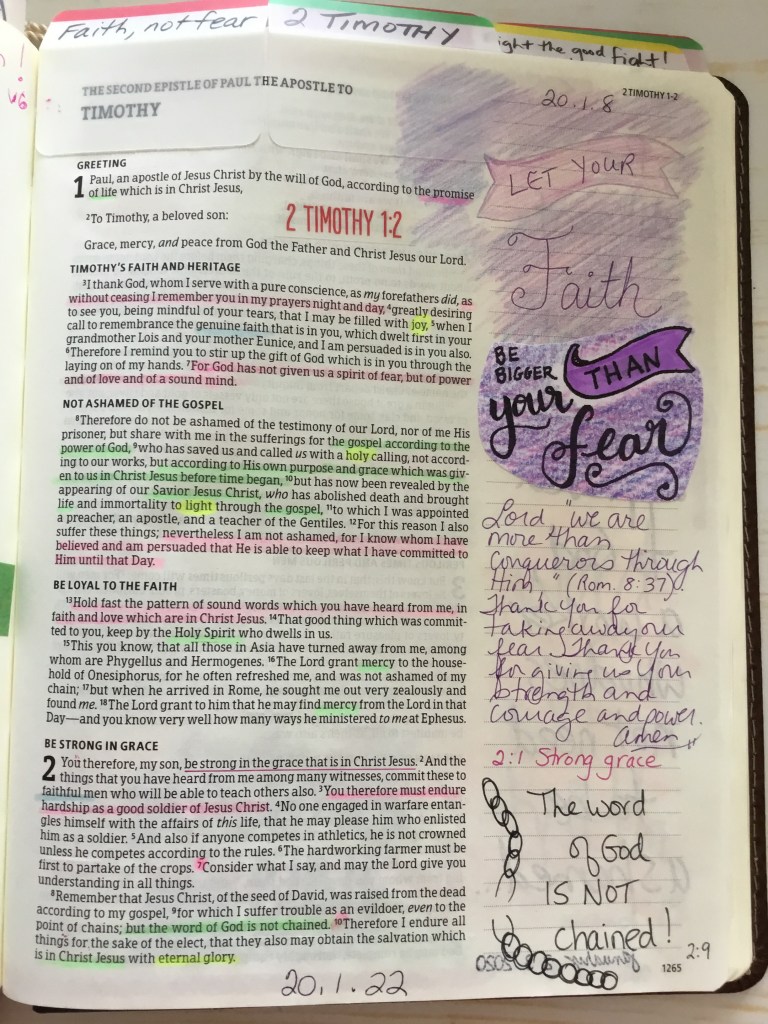 Faith, not fear
2 TIMOTHY
ight the good fight!
v6
THE SECOND EPISTLE OF PAUL THE APOSTLE TO
TIMOTHY
2 TIMOTHY 1-2
20.1.8
GREETING
1 Paul, an apostle of Jesus Christ by the will of God, according to the promise
of life which is in Christ Jesus,
2To Timothy, a beloved son:
2 TIMOTHY 1:2
Grace, mercy, and peace from God the Father and Christ Jesus our Lord.
TIMOTHY'S FAITH AND HERITAGE
3I thank God, whom I serve with a pure conscience, as my forefathers did, as
without ceasing I remember you in my prayers night and day, 4greatly desiring
to see you, being mindful of your tears, that I may be filled with joy, 5when I
call to remembrance the genuine faith that is in you, which dwelt first in your
grandmother Lois and your mother Eunice, and I am persuaded is in you also.
6Therefore I remind you to stir up the gift of God which is in you through the
laying on of my hands. 7For God has not given us a spirit of fear, but of power
and of love and of a sound mind.
NOT ASHAMED OF THE GOSPEL
8Therefore do not be ashamed of the testimony of our Lord, nor of me His
prisoner, but share with me in the sufferings for the gospel according to the
power of God, 9who has saved us and called us with a holy calling, not accord-
ing to our works, but according to His own purpose and grace which was giv-
en to us in Christ Jesus before time began, 10but has now been revealed by the
appearing of our Savior Jesus Christ, who has abolished death and brought
life and immortality to light through the gospel, 11to which I was appointed
a preacher, an apostle, and a teacher of the Gentiles. 12For this reason I also
suffer these things; nevertheless I am not ashamed, for I know whom I have
believed and am persuaded that He is able to keep what I have committed to
Him until that Day.
BE LOYAL TO THE FAITH
13Hold fast the pattern of sound words which you have heard from me, in
faith and love which are in Christ Jesus. 14That good thing which was commit-
ted to you, keep by the Holy Spirit who dwells in us.
15This you know, that all those in Asia have turned away from me, among
whom are Phygellus and Hermogenes. 16The Lord grant mercy to the house-
hold of Onesiphorus, for he often refreshed me, and was not ashamed of my
chain; 17but when he arrived in Rome, he sought me out very zealously and
found me. 18The Lord grant to him that he may find mercy from the Lord in that
Day—and you know very well how many ways he ministered to me at Ephesus.
BE STRONG IN GRACE
2 You therefore, my son, be strong in the grace that is in Christ Jesus. 2And the
things that you have heard from me among many witnesses, commit these to
faithful men who will be able to teach others also. 3You therefore must endure
hardship as a good soldier of Jesus Christ. 4No one engaged in warfare entan-
gles himself with the affairs of this life, that he may please him who enlisted
him as a soldier. 5And also if anyone competes in athletics, he is not crowned
unless he competes according to the rules. 6The hardworking farmer must be
first to partake of the crops. 7Consider what I say, and may the Lord give you
understanding in all things.
8Remember that Jesus Christ, of the seed of David, was raised from the dead
according to my gospel, 9for which I suffer trouble as an evildoer, even to the
point of chains; but the word of God is not chained. 10Therefore I endure all
things for the sake of the elect, that they also may obtain the salvation which
is in Christ Jesus with eternal glory.
20.1.22
LET YOUR
Faith
BE
BIGGER
THAN
your
fear
Lord "we are
more than
conquerors through
Him" (Rom. 8:37).
Thank You for
taking away our
fear. Thank You
for giving us Your
strength and
courage and power.
Amen
2:1 Strong grace
The word
of God
IS NOT
chained!
2:9
January 2020
1265